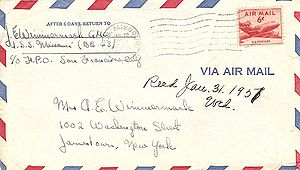 AFTER 5 DAYS RETURN TO
J. E. Wimmermark
U.S.S. Missouri (BB-63)
c/o F.P.O. San Francisco, Cal
AIR MAIL
6¢
VIA AIR MAIL
Recd Jan. 31. 1951
Mrs A. E. Wimmermark
1002 Washington Street
Jamestown, New York